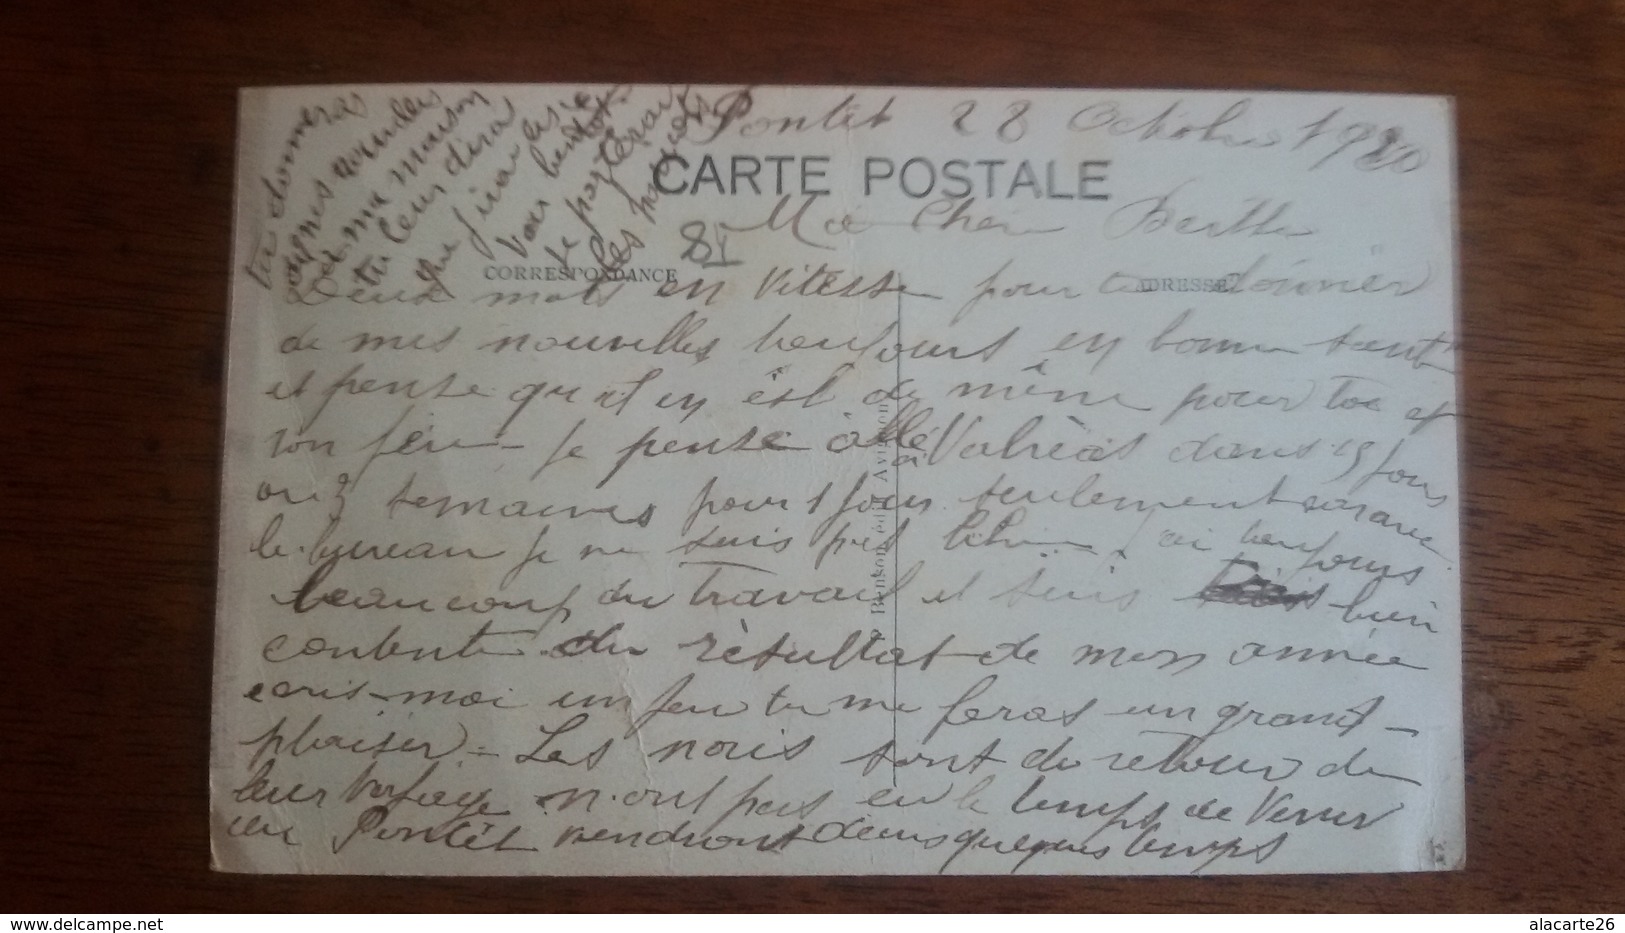 Pontet 28 Octobre 1920
CARTE POSTALE
Ma Cher Berthe
CORRESPONDANCE
ADRESSE
Deux mots en vitesse pour te donner
de mes nouvelles toujours en bonne sent
et pense qu'il en est de même pour toi et
ton Je pense allé à Valréas dans 15 jours
ou 3 semaines pour 1 jour seulement car avec
le bureau je ne suis pas libre j'ai toujours
beaucoup du travail et suis bien
contente du résultat de mon année
ecris-moi un peu tu me feras un grand
plaisir - Les nois sont de retour de
leur voyage n'ont pas eu le temps de venir
au Pontet viendront dans quelques temps
tu donneras
de ma maison
tu leur dira
que j'irai les
voir bientôt
je porterai
les
Benson édit Avignon
www.delcampe.net
alacarte26